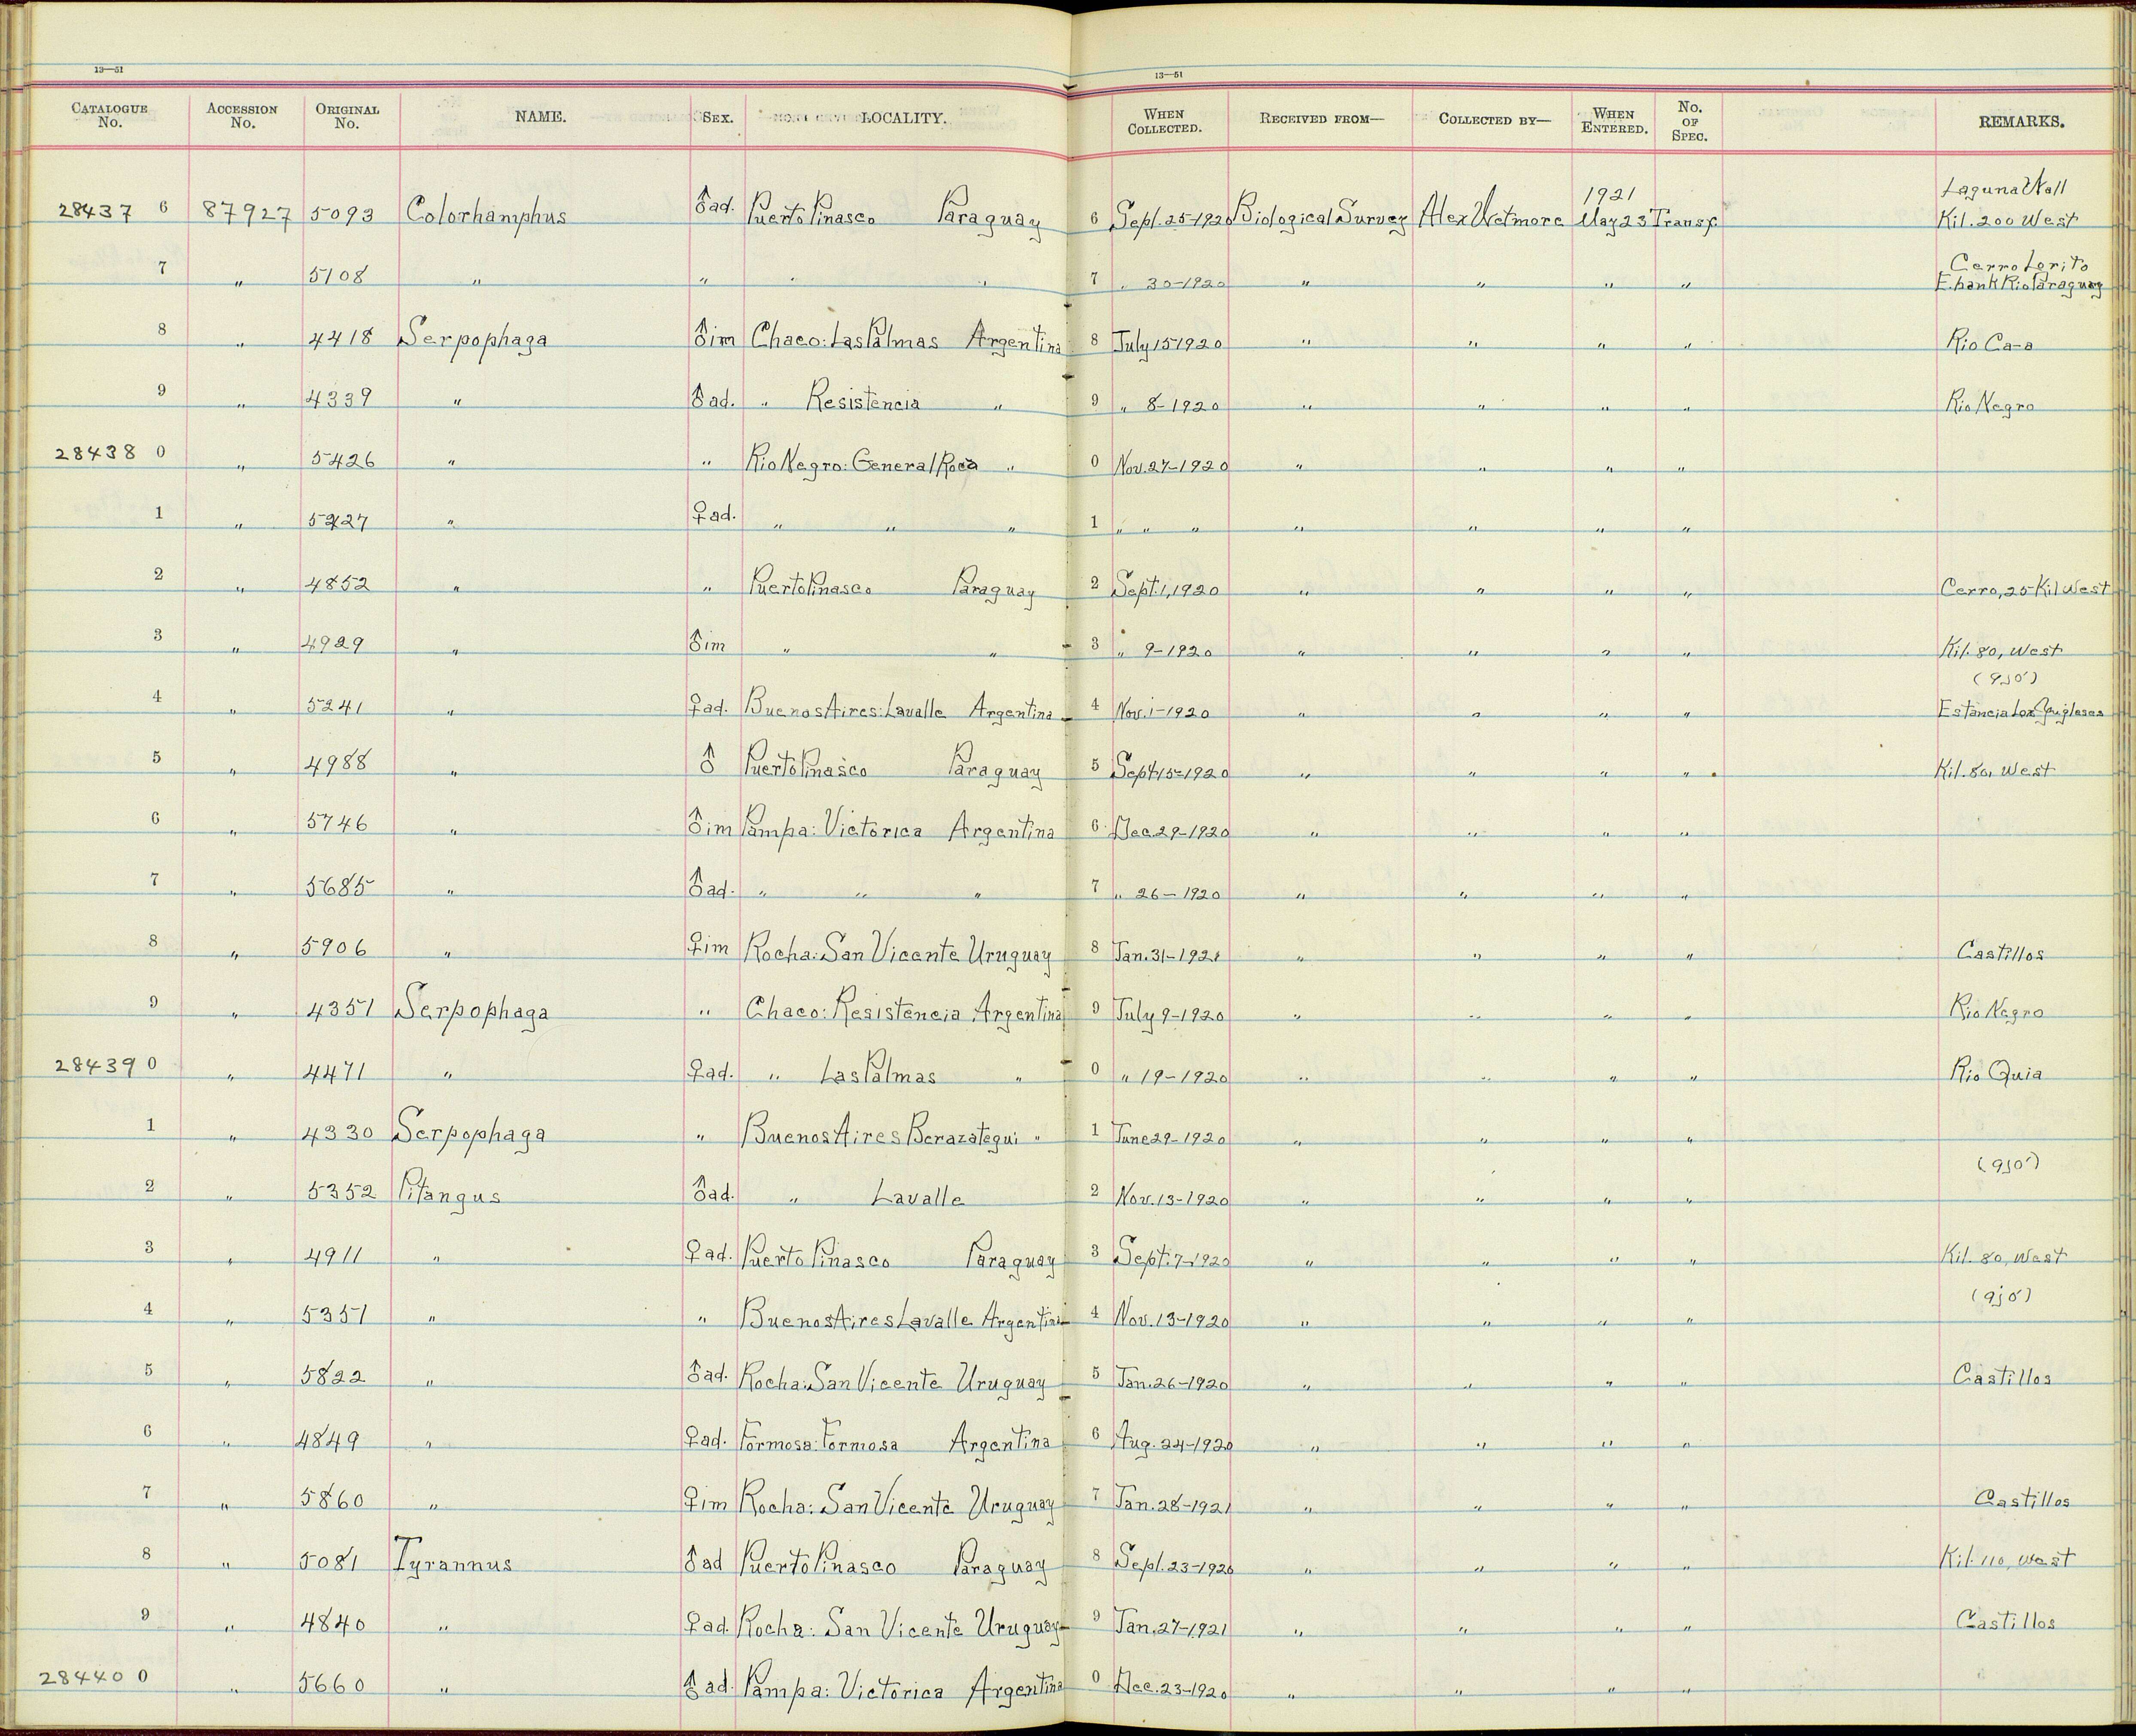 13—51 13—51
CATALOGUE No. ACCESSION No. ORIGINAL No. NAME. SEX. LOCALITY. WHEN COLLECTED. RECEIVED FROM— COLLECTED BY— WHEN ENTERED. No. OF SPEC. REMARKS.
28437 6 87927 5093 Colorhamphus ♂ad. Puerto Pinasco Paraguay 6 Sept. 25-1920 Biological Survey Alex Wetmore 1921 May 23 Transf. Laguna Wall Kil. 200 West
7 " 5108 " " " " 7 " 30-1920 " " " " Cerro Lorito E. bank Rio Paraguay
8 " 4418 Serpophaga ♂im Chaco: Las Palmas Argentina 8 July 15 1920 " " " " Rio Ca-a
9 " 4339 " ♂ad. " Resistencia " 9 " 8-1920 " " " " Rio Negro
28438 0 " 5426 " " Rio Negro: General Roca " 0 Nov. 27-1920 " " " "
1 " 5427 " ♀ad. " " " 1 " " " " " " "
2 " 4852 " " Puerto Pinasco Paraguay 2 Sept. 1, 1920 " " " " Cerro, 25 Kil West
3 " 4929 " ♂im " " 3 " 9-1920 " " " " Kil. 80, West
4 " 5241 " ♀ad. Buenos Aires: Lavalle Argentina 4 Nov. 1-1920 " " " " (ajó) Estancia Los Yngleses
5 " 4988 " ♂ Puerto Pinasco Paraguay 5 Sept. 15-1920 " " " " Kil. 80, West
6 " 5746 " ♂im Pampa: Victorica Argentina 6 Dec. 29-1920 " " " "
7 " 5685 " ♂ad. " " " 7 " 26-1920 " " " "
8 " 5906 " ♀im Rocha: San Vicente Uruguay 8 Jan. 31-1921 " " " " Castillos
9 " 4351 Serpophaga " Chaco: Resistencia Argentina 9 July 9-1920 " " " " Rio Negro
28439 0 " 4471 " ♀ad. " Las Palmas " 0 " 19-1920 " " " " Rio Quia
1 " 4330 Serpophaga " Buenos Aires Berazategui " 1 June 29-1920 " " " "
2 " 5352 Pitangus ♂ad. " Lavalle 2 Nov. 13-1920 " " " " (ajó)
3 " 4911 " ♀ad. Puerto Pinasco Paraguay 3 Sept. 7-1920 " " " " Kil. 80, West
4 " 5351 " " Buenos Aires Lavalle Argentina 4 Nov. 13-1920 " " " " (ajó)
5 " 5822 " ♂ad. Rocha: San Vicente Uruguay 5 Jan. 26-1920 " " " " Castillos
6 " 4849 " ♀ad. Formosa: Formosa Argentina 6 Aug. 24-1920 " " " "
7 " 5860 " ♀im Rocha: San Vicente Uruguay 7 Jan. 28-1921 " " " " Castillos
8 " 5081 Tyrannus ♂ad Puerto Pinasco Paraguay 8 Sept. 23-1920 " " " " Kil. 110, West
9 " 4840 " ♀ad. Rocha: San Vicente Uruguay 9 Jan. 27-1921 " " " " Castillos
28440 0 " 5660 " ♂ad. Pampa: Victorica Argentina 0 Dec. 23-1920 " " " "